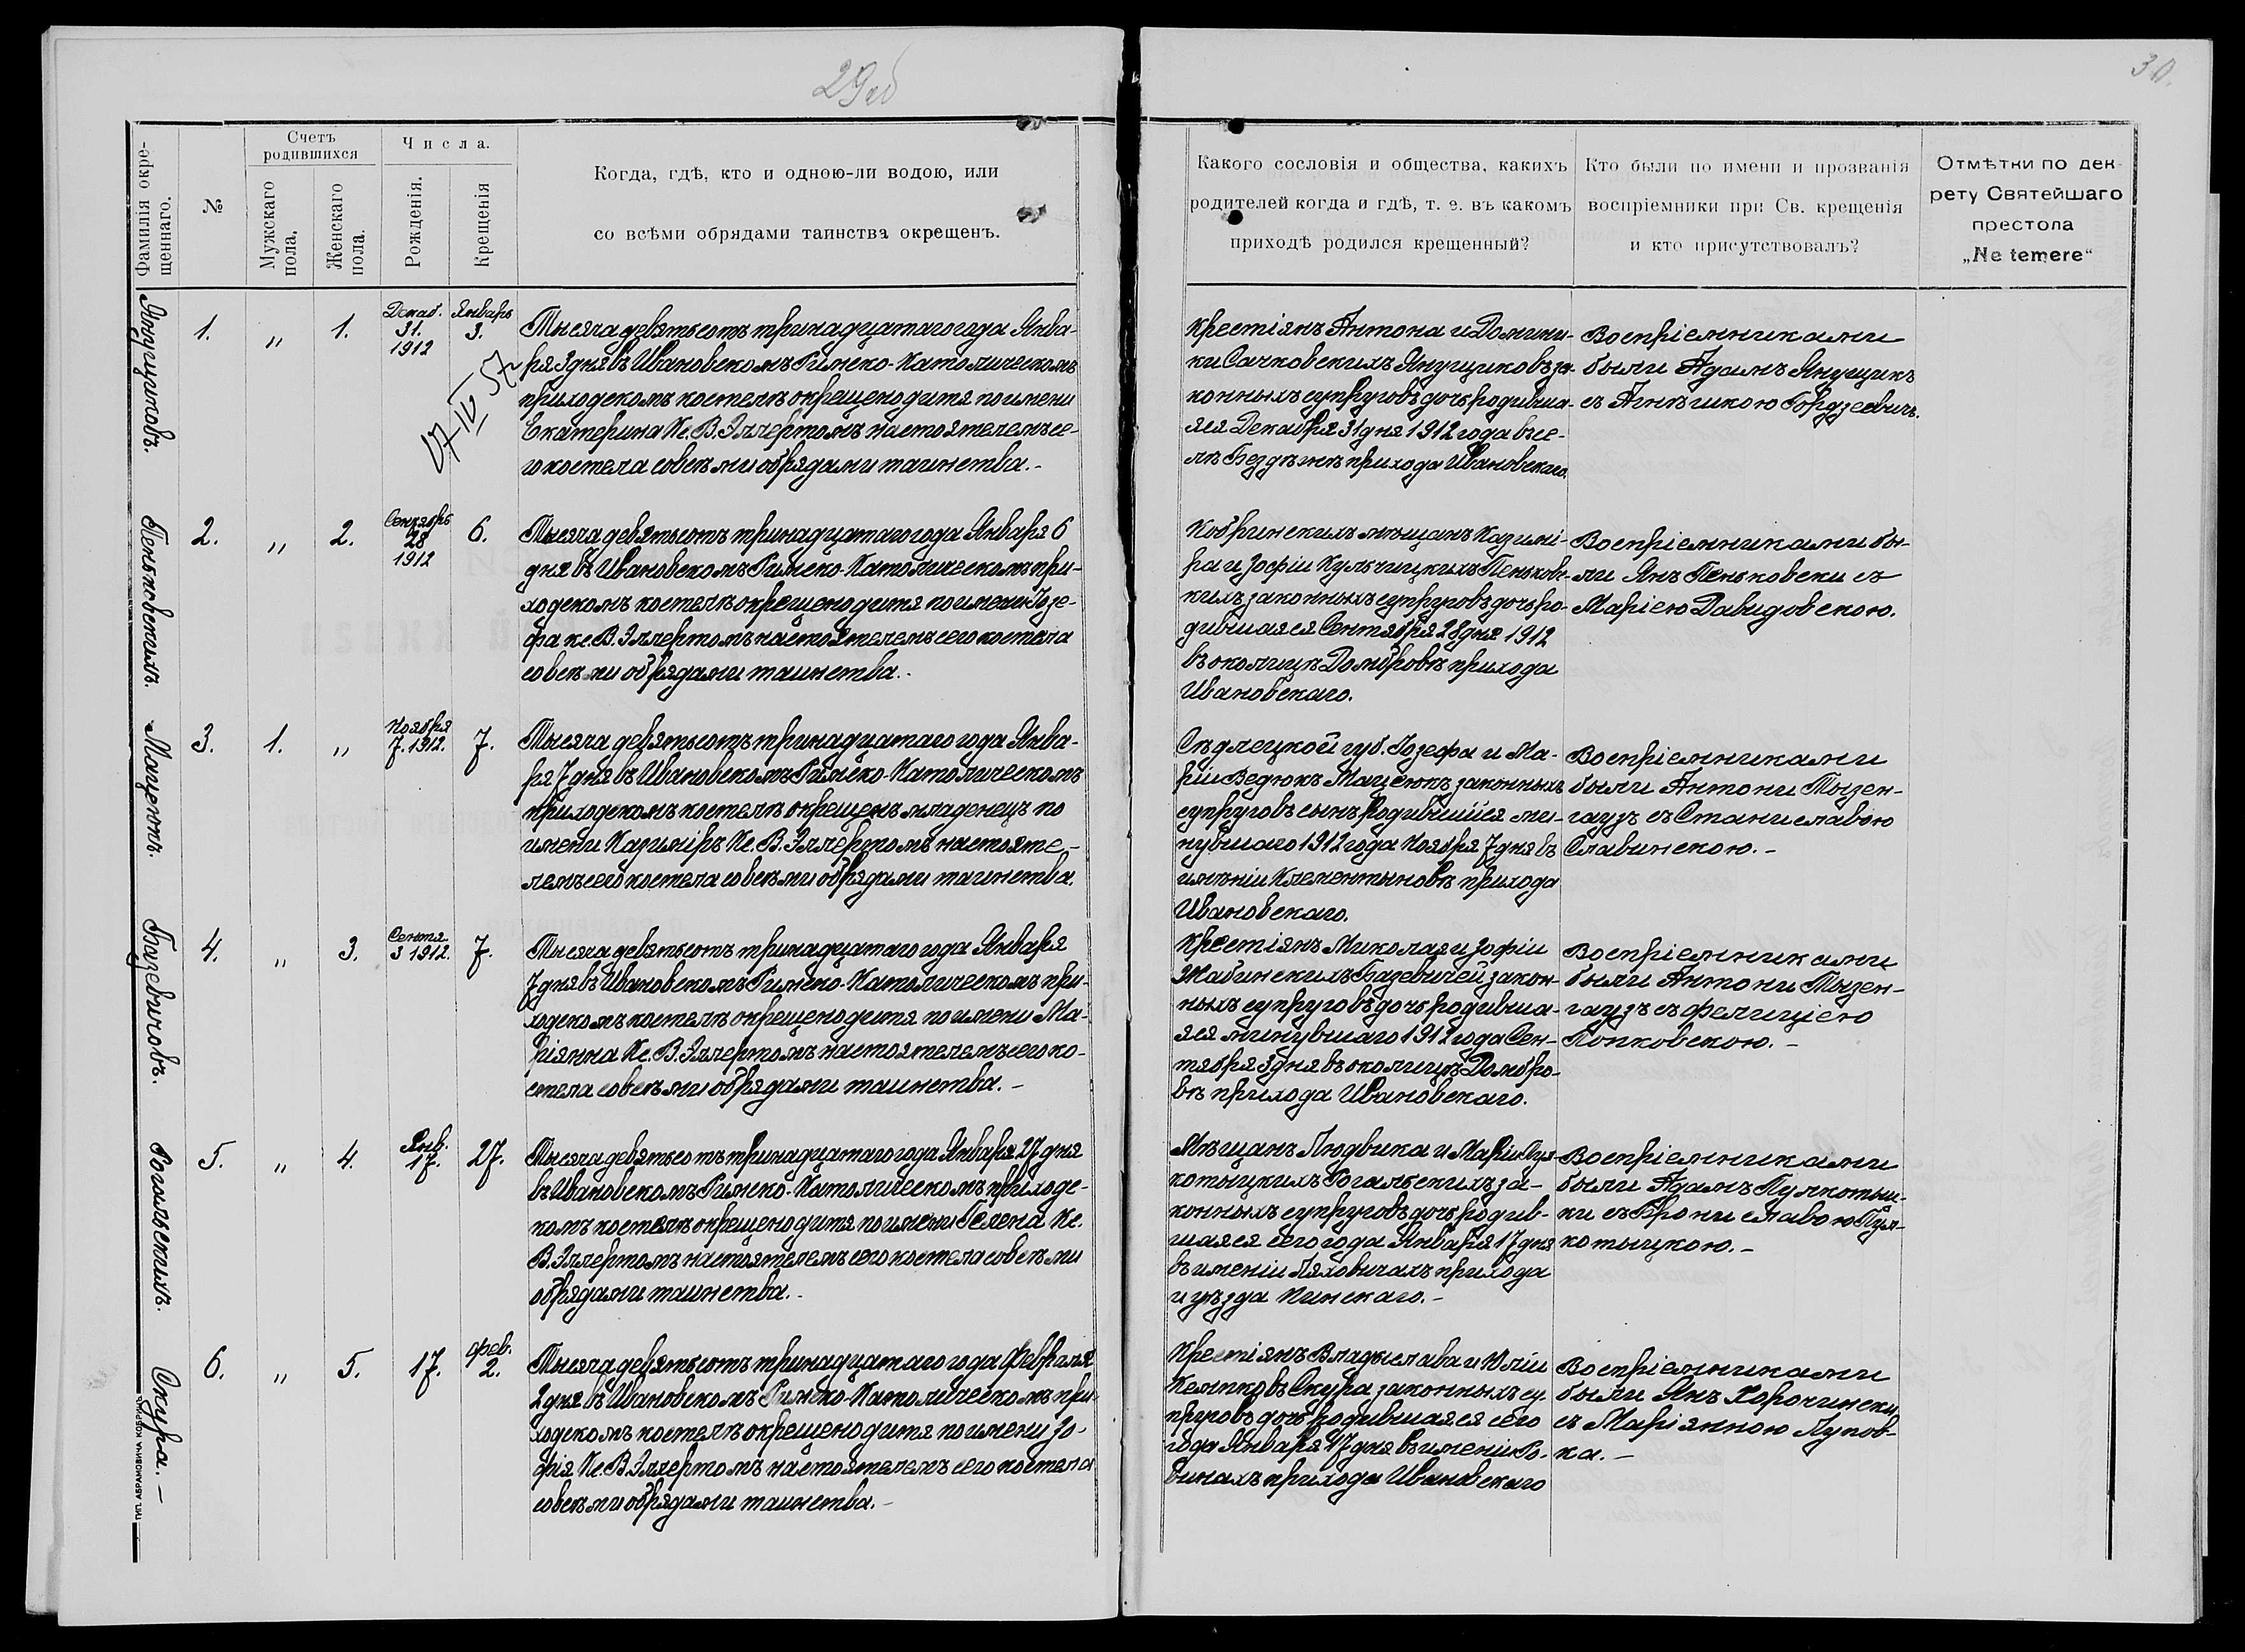 29об
30.
Фамилія окре-
щеннаго.
№
Счетъ
родившихся
Мужскаго
пола.
Женскаго
пола.
Числа.
Рожденія.
Крещенія
Когда, гдѣ, кто и одною-ли водою, или
со всѣми обрядами таинства окрещенъ.
Какого сословія и общества, какихъ
родителей когда и гдѣ, т. е. въ какомъ
приходѣ родился крещенный?
Кто были по имени и прозванія
воспріемники при Св. крещенія
и кто присутствовалъ?
Отмѣтки по дек-
рету Святейшаго
престола
„Ne temere“
Янущиковъ.
1.
"
1.
Декаб.
31.
1912
Январь
3.
Тысяча девятьсотъ тринадцатаго года Янва-
ря 3 дня въ Ивановскомъ Римско-Католическомъ
приходскомъ костелѣ окрещено дитя по имени
Екатерина Кс. В. Эллертомъ настоятелемъ се-
го костела совсѣми обрядами таинства.-
Крестіянъ Антона и Домини-
ки Сачковскихъ Янущиковъ за-
конныхъ супруговъ дочь родивша-
яся Декабря 31 дня 1912 года въ се-
лѣ Бездѣжѣ прихода Ивановскаго.
Воспріемниками
были Адамъ Янущикъ
съ Агнѣшкою Гордзеевичъ.
Пеньковскихъ.
2.
"
2.
Сентябрь
28
1912
6.
Тысяча девятьсотъ тринадцатаго года Января 6
дня въ Ивановскомъ Римско-Католическомъ при-
ходскомъ костелѣ окрещено дитя по имени Іозе-
фа Кс. В. Эллертомъ настоятелемъ сего костела
совсѣми обрядами таинства.-
Кобринскихъ мѣщанъ Казимі-
ра и Зофіи Кульчицкихъ Пеньковс-
кихъ законныхъ супруговъ дочь ро-
дившаяся Сентября 28 дня 1912
въ околицѣ Домбровѣ прихода
Ивановскаго.
Воспріемниками бы-
ли Янъ Пеньковски съ
Маріею Давидовскою.
Мацеюкъ.
3.
1.
"
Ноября
7. 1912.
7.
Тысяча девятьсотъ тринадцатаго года Янва-
ря 7 дня въ Ивановскомъ Римско-Католическомъ
приходскомъ костелѣ окрещенъ младенецъ по
имени Казиміръ Кс. В. Эллертомъ настояте-
лемъ сего костела совсѣми обрядами таинства.
Сѣдлецкой губ. Іозефа и Ма-
ріи Ведюкъ Мацеюкъ законныхъ
супруговъ сынъ родившійся ми-
нувшаго 1912 года Ноября 7 дня въ
имѣніи Клементыновѣ прихода
Ивановскаго.
Воспріемниками
были Антони Тызен-
гаузъ съ Станиславою
Славинскою.-
Базевичовъ.
4.
"
3.
Сентя.
3 1912.
7.
Тысяча девятьсотъ тринадцатаго года Января
7 дня въ Ивановскомъ Римско-Католическомъ при-
ходскомъ костелѣ окрещено дитя по имени Ма-
ріянна Кс. В. Эллертомъ настоятелемъ сего ко-
стела совсѣми обрядами таинства.-
Крестіянъ Миколая и Зофіи
Жабинскихъ Базевичей закон-
ныхъ супруговъ дочь родивша-
яся минувшаго 1912 года Сен-
тября 3 дня въ околицѣ Домбро-
вѣ прихода Ивановскаго.
Воспріемниками
были Антони Тызен-
гаузъ съ Фелиціею
Попковскою.-
Рогальскихъ.
5.
"
4.
Янв.
17.
27.
Тысяча девятьсотъ тринадцатаго года Января 27 дня
въ Ивановскомъ Римско-Католическомъ приходс-
комъ костелѣ окрещено дитя по имени Гелена Кс.
В. Эллертомъ настоятелемъ сего костела совсѣми
обрядами таинства.-
Мѣщанъ Людвика и Маріи Пул-
котыцкихъ Рогальскихъ за-
конныхъ супруговъ дочь родив-
шаяся сего года Января 17 дня
въ имѣніи Ляховичахъ прихода
и уѣзда Пинскаго.-
Воспріемниками
были Адамъ Пулкотыц-
ки съ Брониславою Пул-
котыцкою.-
Скура.-
6.
"
5.
17.
Фев.
2.
Тысяча девятьсотъ тринадцатаго года Февраля
2 дня въ Ивановскомъ Римско-Католическомъ при-
ходскомъ костелѣ окрещено дитя по имени Зо-
фія Кс. В. Эллертомъ настоятелемъ сего костела
совсѣми обрядами таинства.-
Крестіянъ Владыслава и Юліи
Кемпковъ Скура законныхъ су-
пруговъ дочь родившаяся сего
года Января 17 дня въ имѣніи
прихода Ивановскаго
Воспріемниками
были Янъ Хорочински
съ Маріянною Лупов-
ка.-
ТИП. АБРАМОВИЧА КОБРИНЪ